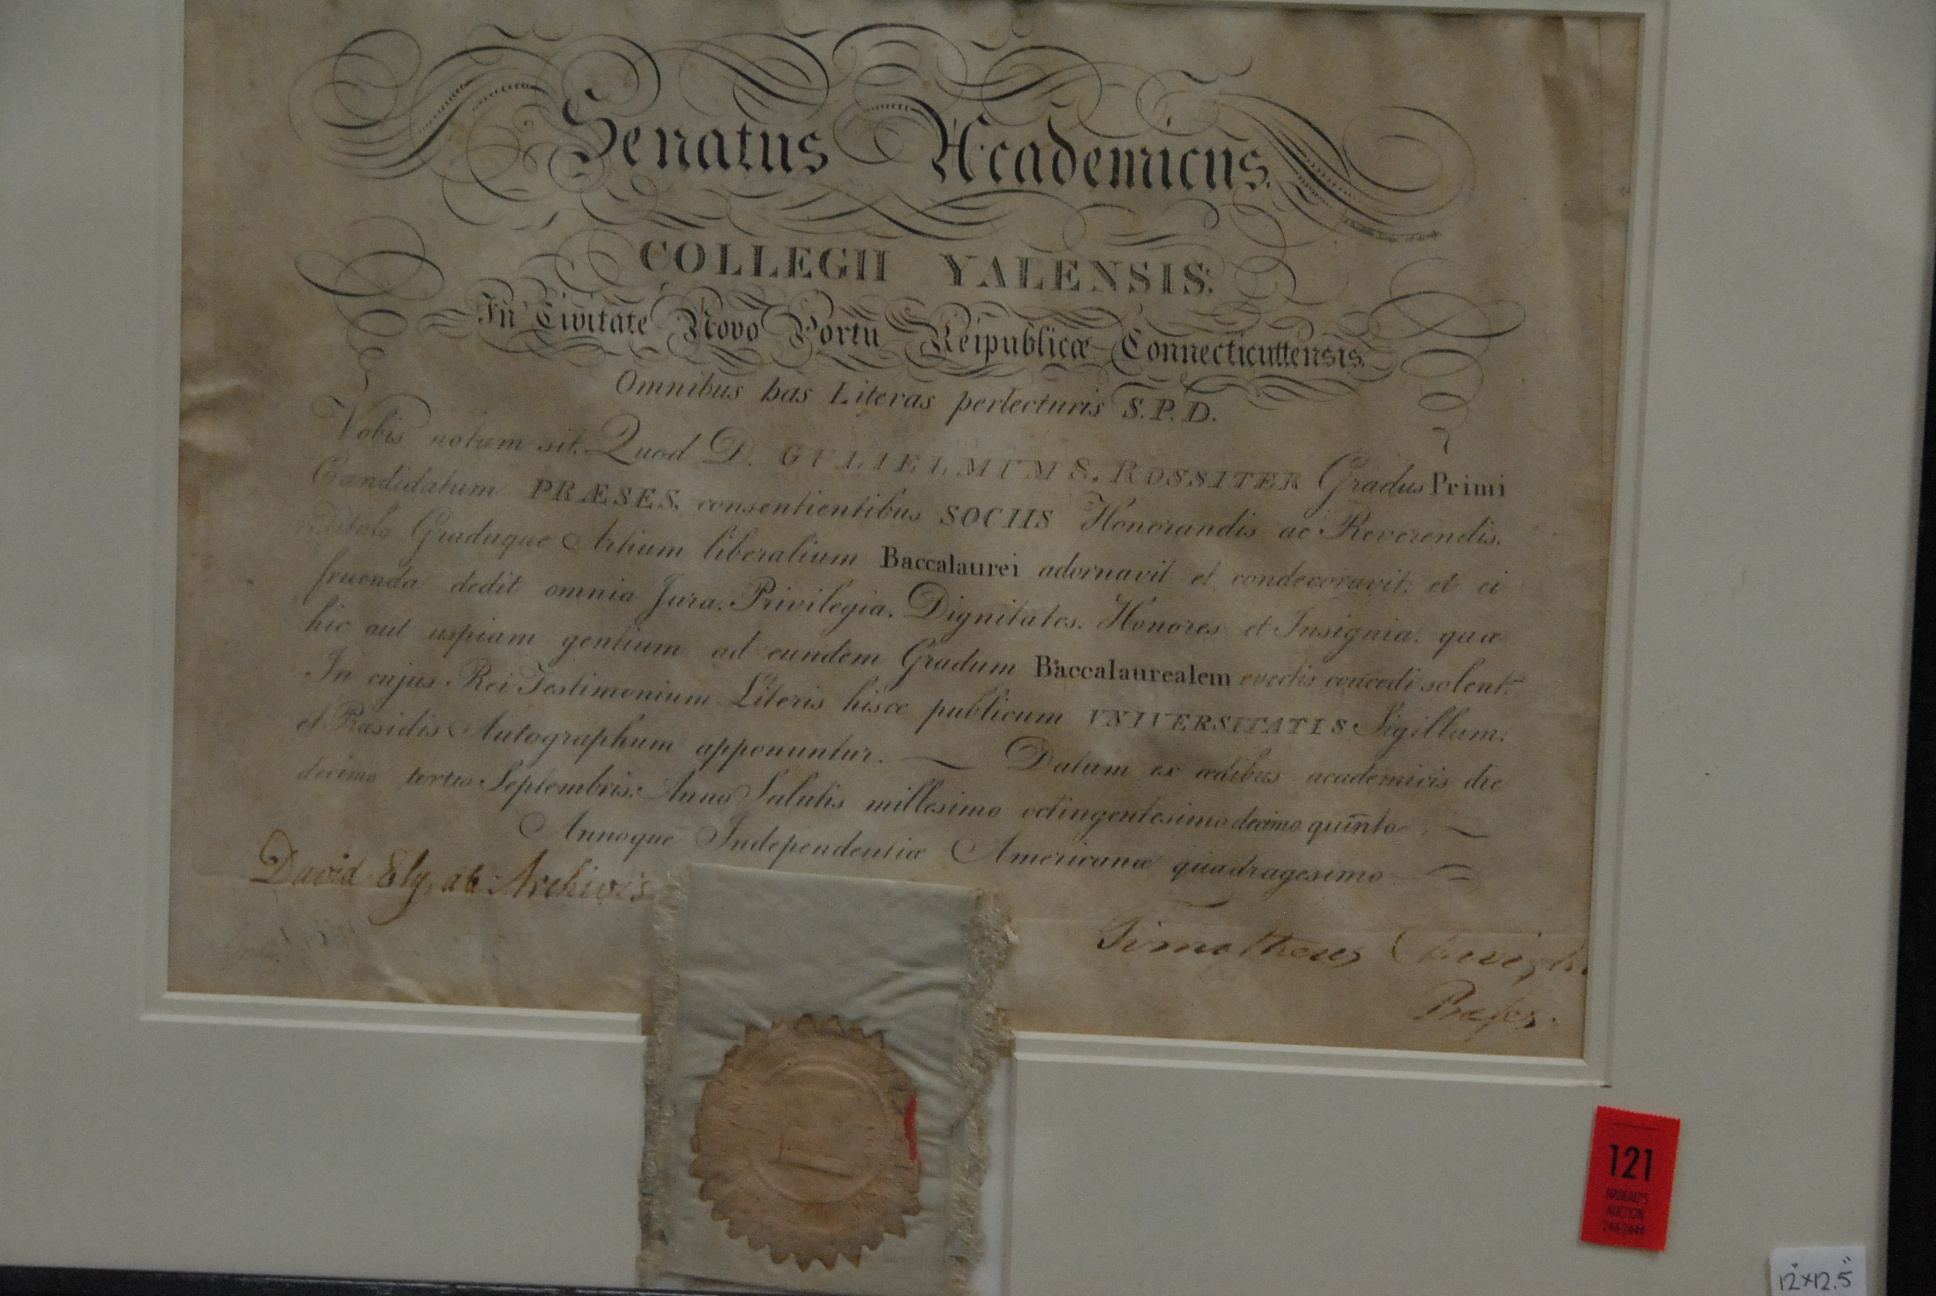 Senatus Academicus.
COLLEGII YALENSIS:
In Civitate Novo Portu Reipublicæ Connecticuttensis.
Omnibus has Literas perlecturis S.P.D.
Vobis notum sit. Quod D. GULIELMUM S. ROSSITER Gradus Primi
Candidatum PRÆSES, consentientibus SOCIIS Honorandis ac Reverendis.
Titulo Graduque Artium liberalium Baccalaurei adornavit et condecoravit; et ei
fruenda dedit omnia Jura, Privilegia, Dignitates, Honores et Insignia, quæ
hic aut uspiam gentium ad eundem Gradum Baccalaurealem evectis concedi solent.
In cujus Rei Testimonium Literis hisce publicum UNIVERSITATIS Sigillum;
et Præsidis Autographum apponuntur. Datum ex ædibus academicis die
decimo tertio Septembris: Anno Salutis millesimo octingentesimo decimo quinto
Annoque Independentiæ Americanæ quadragesimo
David Ely, ab Archivis
Timotheus Dwight
Præses.
121
NADEAU'S
AUCTION
246-2444
12"x12.5"